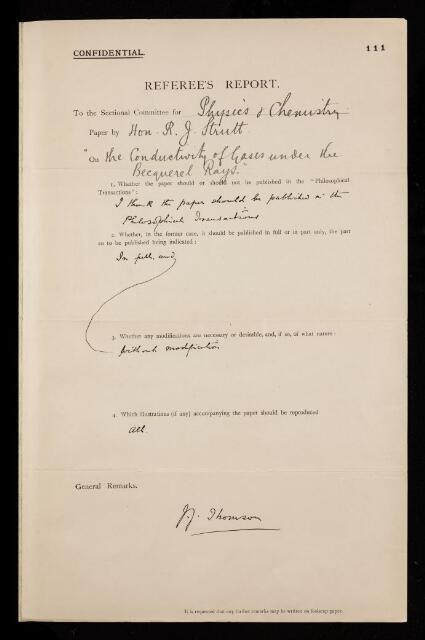 CONFIDENTIAL.
111
REFEREE'S REPORT.
To the Sectional Committee for Physics & Chemistry
Paper by Hon. R. J. Strutt
"On the Conductivity of Gases under the
Becquerel Rays."
1. Whether the paper should or should not be published in the "Philosophical
Transactions":
I think the paper should be published in the
Philosophical Transactions
2. Whether, in the former case, it should be published in full or in part only, the part
so to be published being indicated:
In full, and
3. Whether any modifications are necessary or desirable, and, if so, of what nature:
without modification
4. Which illustrations (if any) accompanying the paper should be reproduced
all.
General Remarks.
J. J. Thomson
It is requested that any further remarks may be written on foolscap paper.